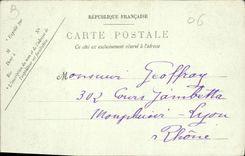 9
06
RÉPUBLIQUE FRANÇAISE
CARTE POSTALE
Ce côté est exclusivement réservé à l'adresse
Monsieur Geoffray
302 Cours Gambetta
Monplaisir - Lyon
Rhône